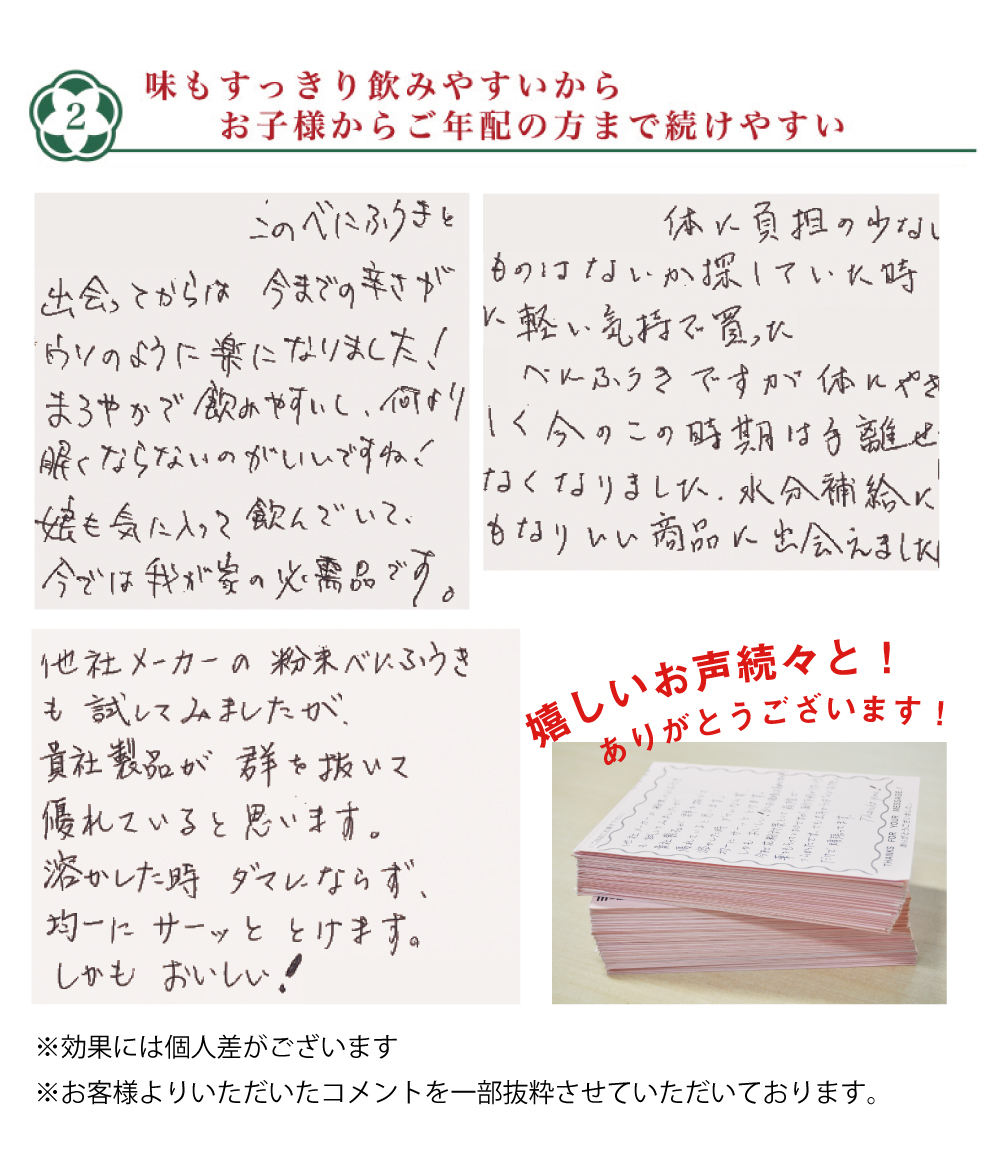 2
味もすっきり飲みやすいから
お子様からご年配の方まで続けやすい
このべにふうきと
出会ってからは 今までの辛さが
ウソのように楽になりました!
まろやかで飲みやすいし、何より
眠くならないのがいいですね!
娘も気に入って飲んでいて、
今では我が家の必需品です。
体に負担の少ない
ものはないか探していた時
に軽い気持で買った
べにふうきですが体にやさ
しく今のこの時期は手離せ
なくなりました。水分補給に
もなりいい商品に出会えました
他社メーカーの粉末べにふうき
も試してみましたが、
貴社製品が群を抜いて
優れていると思います。
溶かした時ダマにならず、
均一にサーッととけます。
しかもおいしい!
嬉しいお声続々と!
ありがとうございます!
THANKS FOR YOUR MESSAGE
※効果には個人差がございます
※お客様よりいただいたコメントを一部抜粋させていただいております。